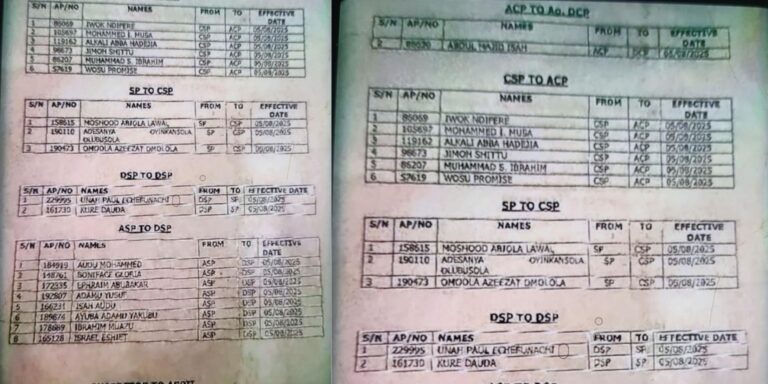 S/N AP/NO NAMES FROM TO EFFECTIVE DATE
1 85069 IWOK NDIFERE CSP ACP 05/08/2025
2 105697 MOHAMMED I. MUSA CSP ACP 05/08/2025
3 119162 ALKALI ABBA HADEJIA CSP ACP 05/08/2025
4 96673 JIMOH SHITTU CSP ACP 05/08/2025
5 86207 MUHAMMAD S. IBRAHIM CSP ACP 05/08/2025
6 57619 WOSU PROMISE CSP ACP 05/08/2025
SP TO CSP
S/N AP/NO NAMES FROM TO EFFECTIVE DATE
1 158615 MOSHOOD ABIOLA LAWAL SP CSP 05/08/2025
2 190110 ADESANYA OYINKANSOLA OLUBUSOLA SP CSP 05/08/2025
3 190473 OMOOLA AZEEZAT OMOLOLA SP CSP 05/08/2025
DSP TO DSP
S/N AP/NO NAMES FROM TO EFFECTIVE DATE
1 229995 UNAH PAUL ECHEFUNACHI DSP SP 05/08/2025
2 161730 KURE DAUDA DSP SP 05/08/2025
ASP TO DSP
S/N AP/NO NAMES FROM TO EFFECTIVE DATE
1 184919 AUDU MOHAMMED ASP DSP 05/08/2025
2 148761 BONIFACE GLORIA ASP DSP 05/08/2025
3 172335 EPHRAIM ABUBAKAR ASP DSP 05/08/2025
4 192807 ADAMU YUSUF ASP DSP 05/08/2025
5 166231 ISAH AUDU ASP DSP 05/08/2025
6 189874 AYUBA ADAMU YAKUBU ASP DSP 05/08/2025
7 178689 IBRAHIM ASP DSP 05/08/2025
8 165128 ISRAEL ESHIET ASP DSP 05/08/2025
ACP TO Ag. DCP
S/N AP/NO NAMES FROM TO EFFECTIVE DATE
2 ABDUL MAJID ISAH ACP DCP 05/08/2025
CSP TO ACP
S/N AP/NO NAMES FROM TO EFFECTIVE DATE
1 85069 IWOK NDIFERE CSP ACP 05/08/2025
2 105697 MOHAMMED I. MUSA CSP ACP 05/08/2025
3 119162 ALKALI ABBA HADEJIA CSP ACP 05/08/2025
4 96673 JIMOH SHITTU CSP ACP 05/08/2025
5 86207 MUHAMMAD S. IBRAHIM CSP ACP 05/08/2025
6 57619 WOSU PROMISE CSP ACP 05/08/2025
SP TO CSP
S/N AP/NO NAMES FROM TO EFFECTIVE DATE
1 158615 MOSHOOD ABIOLA LAWAL SP CSP 05/08/2025
2 190110 ADESANYA OYINKANSOLA OLUBUSOLA SP CSP 05/08/2025
3 190473 OMOOLA AZEEZAT OMOLOLA SP CSP 05/08/2025
DSP TO DSP
S/N AP/NO NAMES FROM TO EFFECTIVE DATE
1 229995 UNAH PAUL ECHEFUNACHI DSP SP 05/08/2025
2 161730 KURE DAUDA DSP SP 05/08/2025